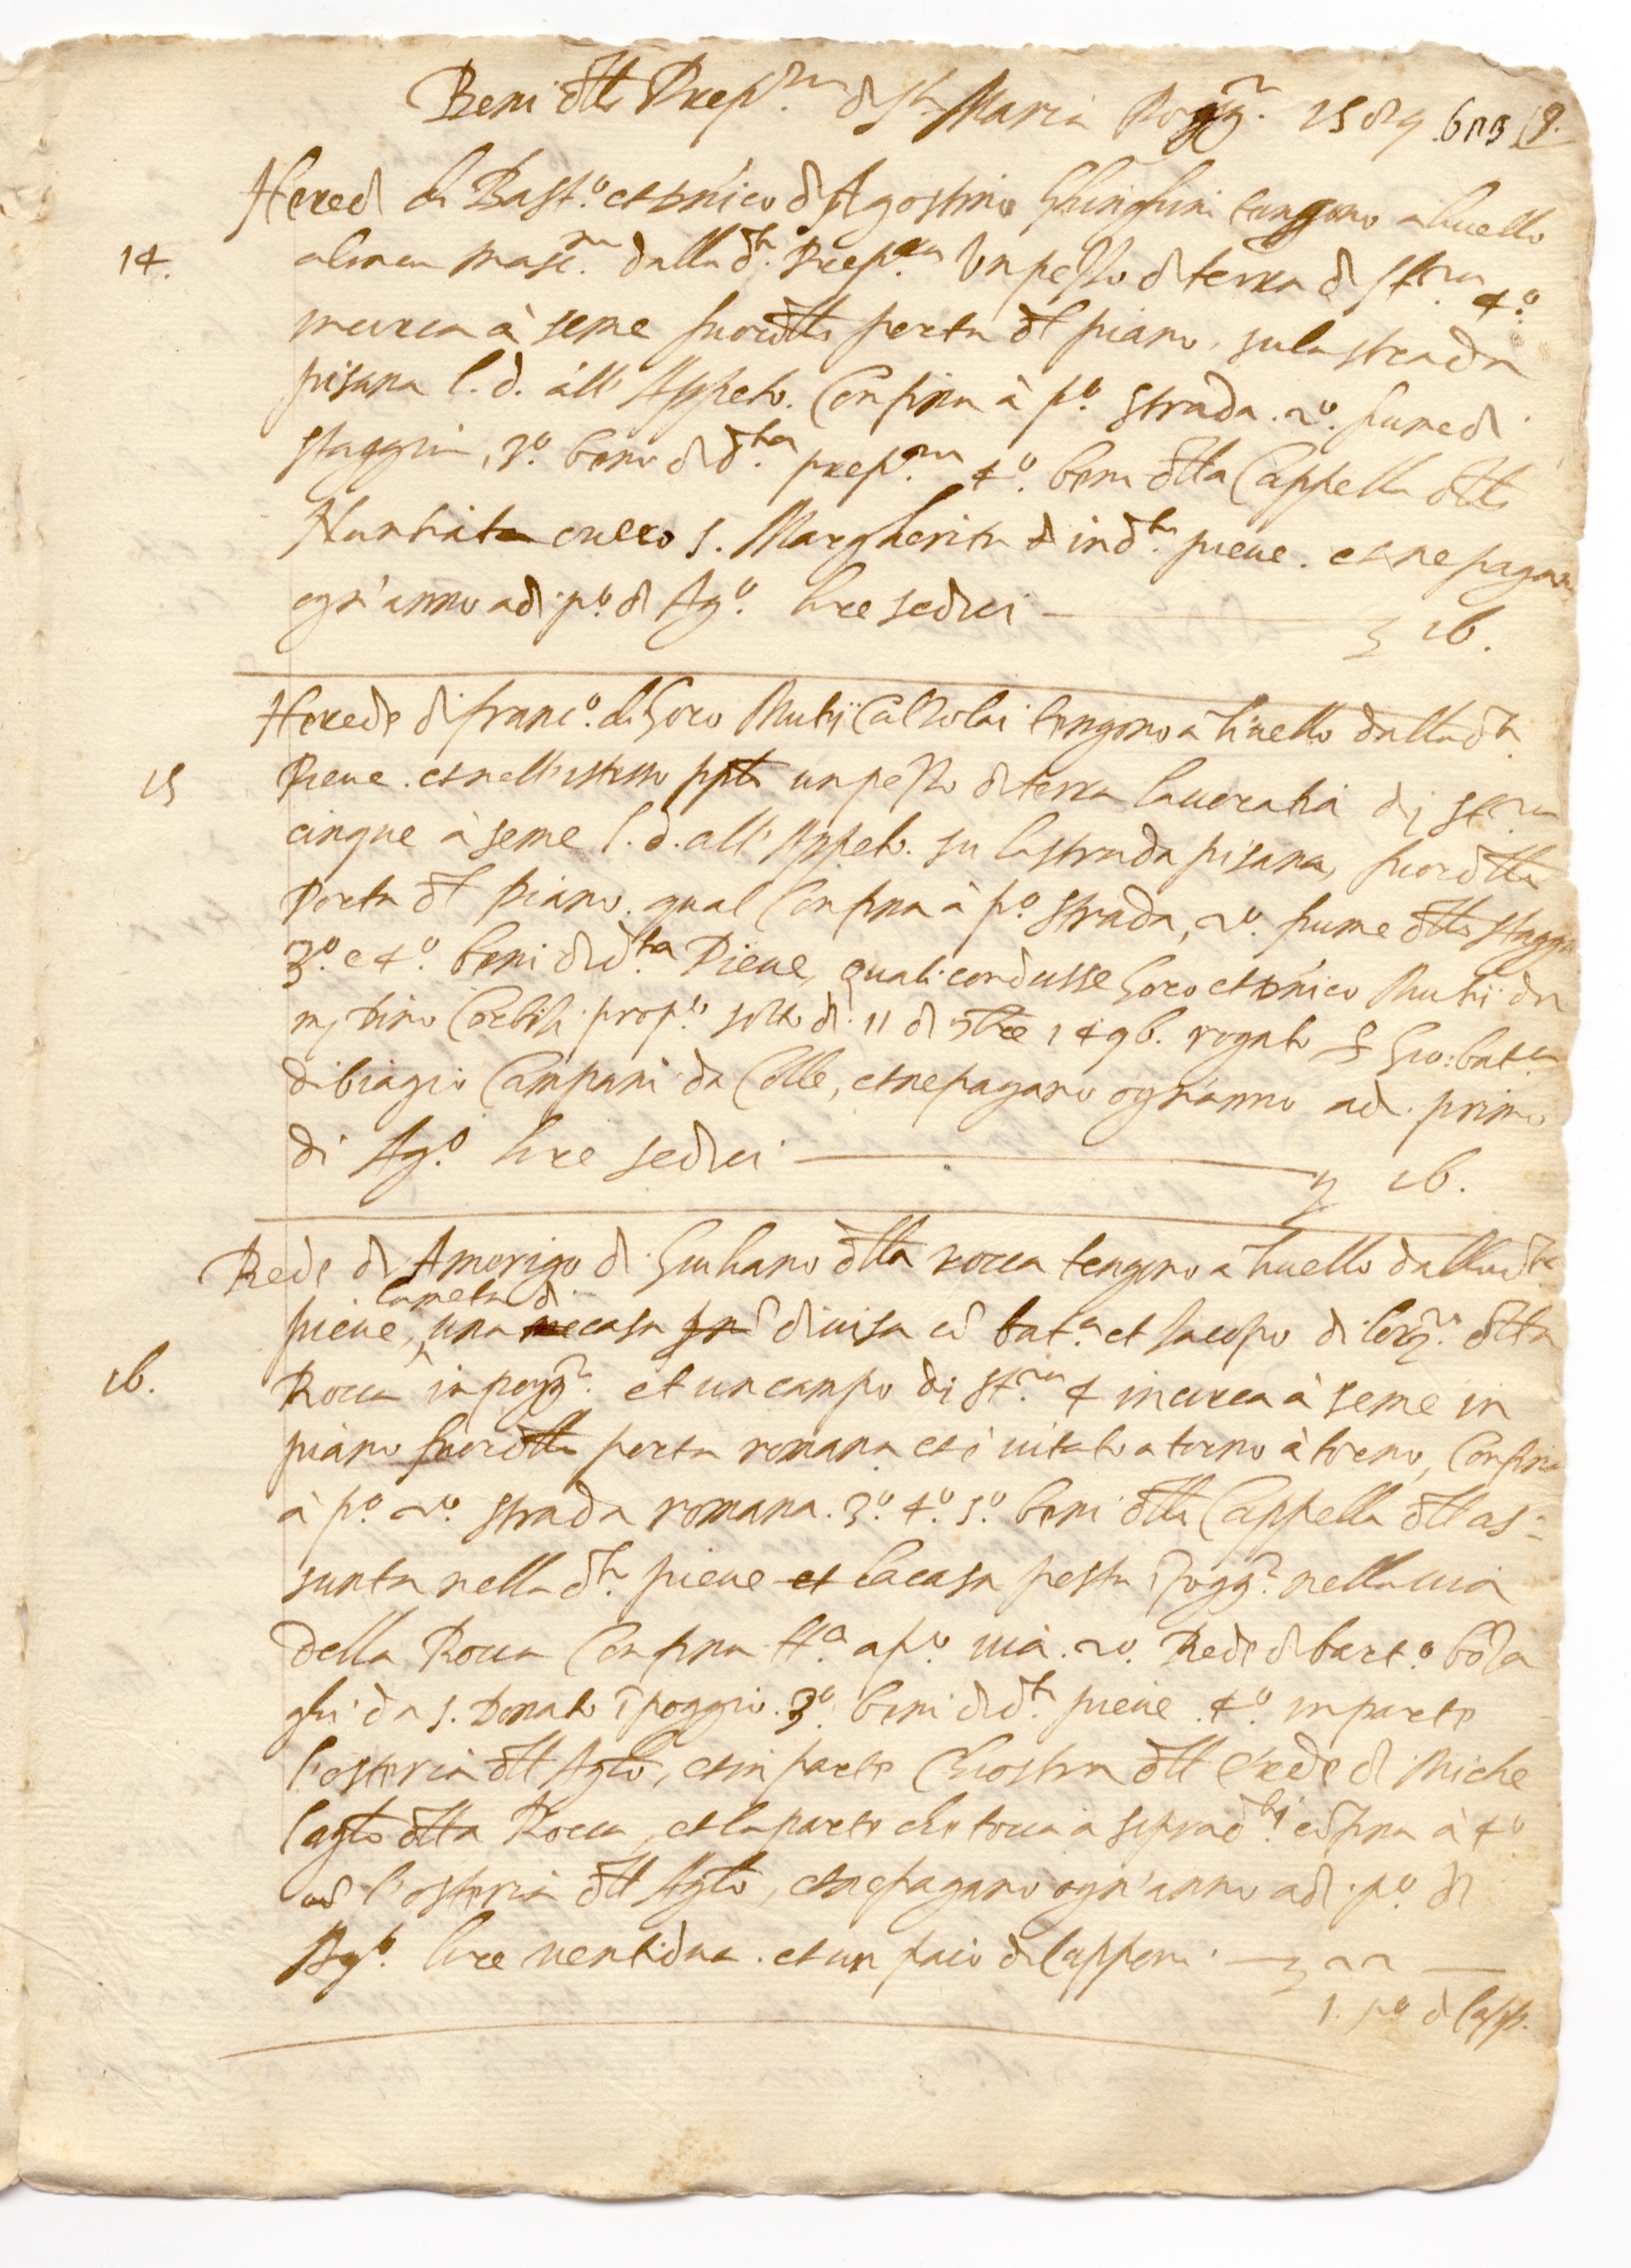 Beni dlla Prep.ra di S.ta Maria Pogg. 1589
Heredi di Bast.o et Dnico di Agostino Ghinghini tengono a livello
14.
a linea masc.na dalla d.ta Prep.ra un pezzo di terra di st.ra 4.o
incirca à seme fuor dlla porta dl piano, su la strada
pisana l. d. all' Appeto. Confina à p.o strada. 2.o fiume di
staggia, 3.o beni di d.ta prep.ra 4.o beni dlla Cappella dlla
Nuntiata overo S. Margherita in d.ta pieve. et ne pagano
ogn' anno adi p.o di Ag.o lire sedici 16.
Herede di franc.o di Goro Mutij Calzolai tengono a livello dalla d.ta
15
Pieve. et nell' istesso ppto un pezzo di terra lavoratia di st.ra
cinque à seme l. d. all' Appeto. su la strada pisana, fuor dlla
Porta dl Piano. qual Confina à p.o strada, 2.o fiume dlla staggia
3.o e 4.o beni di d.ta Pieve, quali condusse Goro et Dnico Mutij da
m. Dino prop.to sotto di 11 di 9bre 1496. rogato p Gio: bat.a
di biagio Campani da Colle, et ne pagano ogn'anno adi primo
di Ag.o lire sedici 16.
Rede di Amerigo di Giuliano dlla rocca tengono a livello dalla d.ta
la meta di
pieve, una casa divisa cō bat.a et Jacopo di lorz.o dlla
16.
Rocca in pogg. et un campo di st.ra 4 incirca à seme in
piano fuor dlla porta romana et è vitato a torno à torno, Confina
à p.o 2.o strada romana. 3.o 4.o 5.o beni dlla Cappella dll as=
sunta nella d.ta pieve et la casa posta ī pogg. nella via
della Rocca Confina a p.o via. 2.o Rede di bart.o boza
ghi da S. Donato ī poggio. 3.o beni di d.ta pieve. 4.o in parte
l'osteria dll Agto, et in parte Chiostra dll Erede di Miche
lagto dlla Rocca, et la parte che tocca a sopra d.ti cōfina à 4.o
cō l'osteria dll Agto, et ne pagano ogn'anno adi p.o di
Ag.o lire ventidua. et un paio di Capponi 22
1. p.o di Capp.